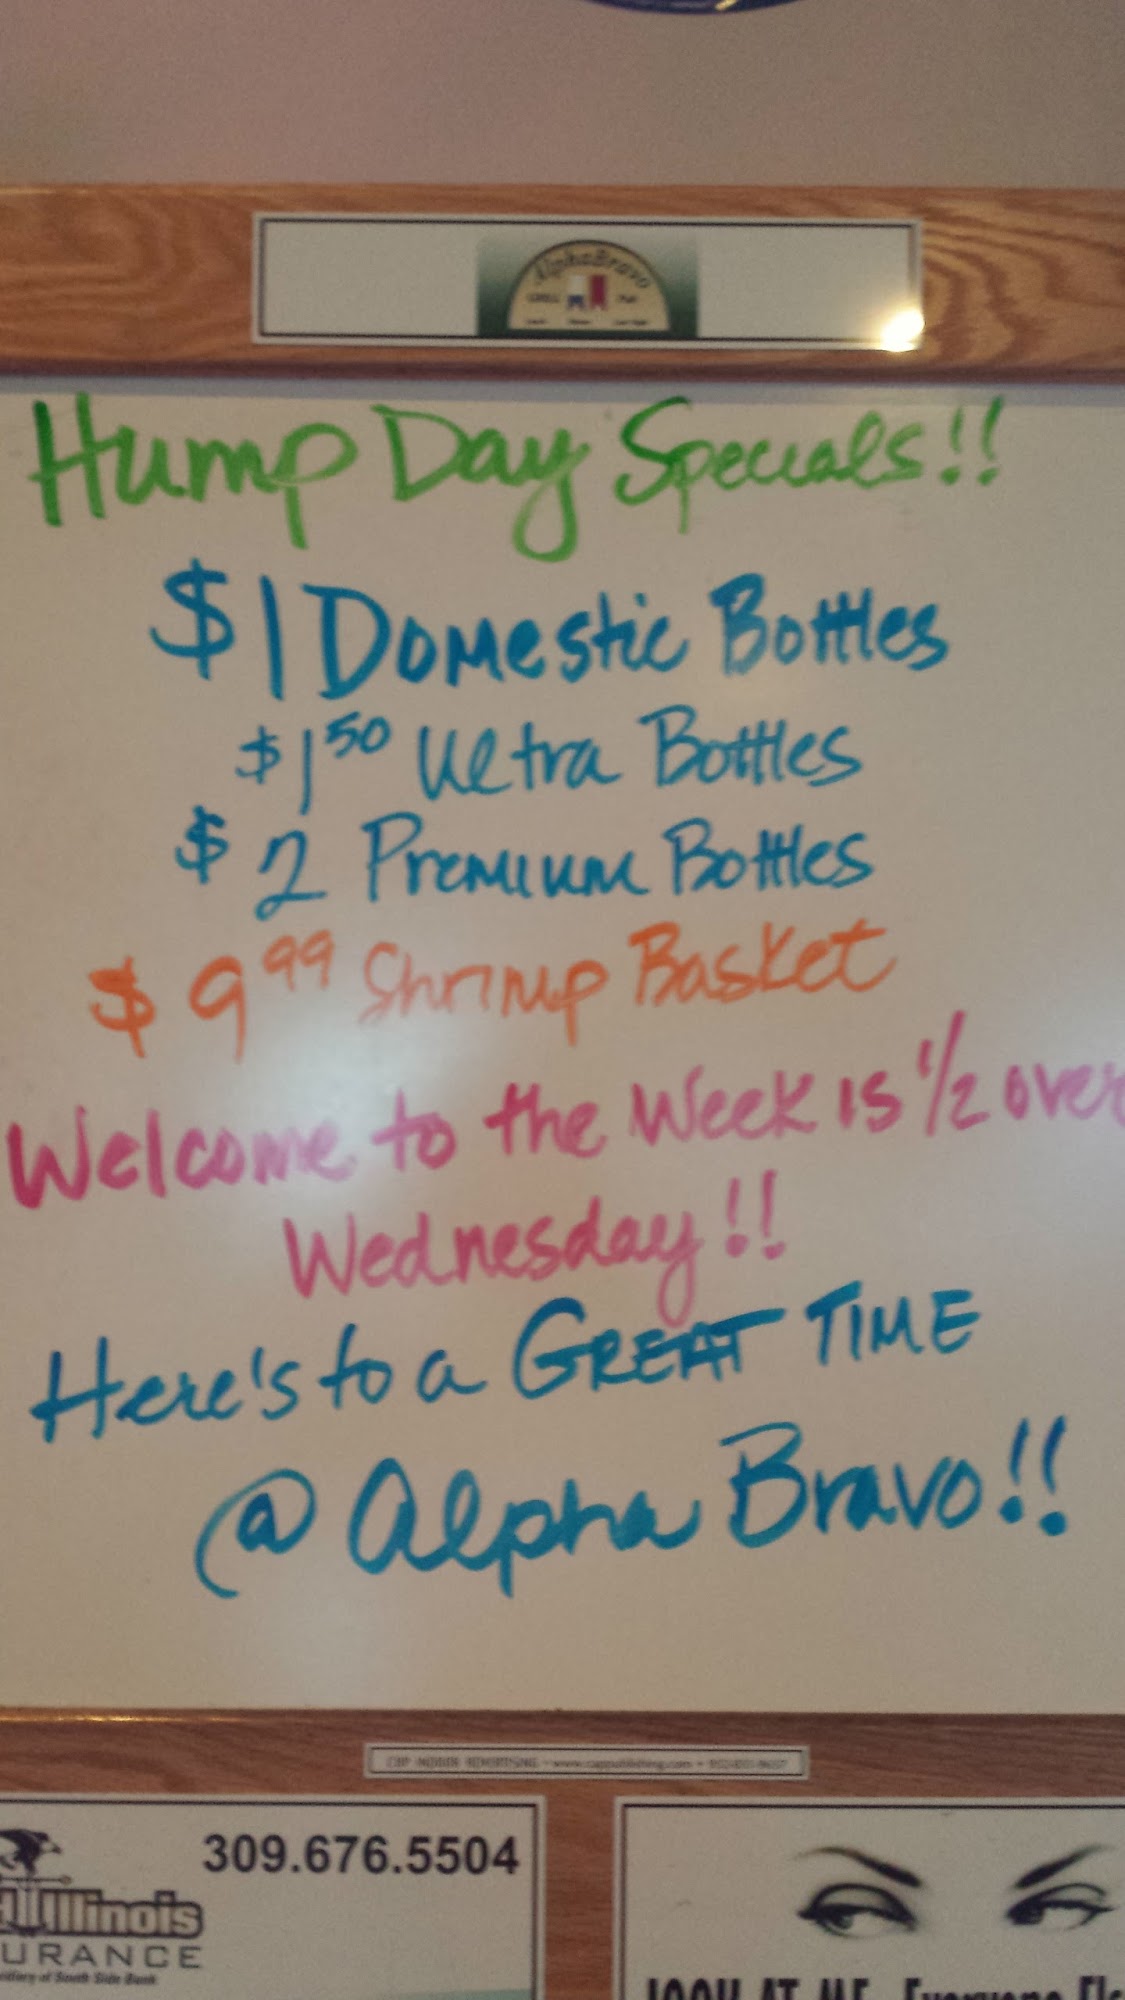 AlphaBravo
Hump Day Specials!!
$1 Domestic Bottles
$1 50 Ultra Bottles
$2 Premium Bottles
$9 99 Shrimp Basket
Welcome to the Week is 1/2 over
Wednesday!!
Here's to a GREAT TIME
@ Alpha Bravo!!
INDOOR ADVERTISING
309.676.5504
Illinois
URANCE
of South Side Bank
LOOK AT ME. Everyone